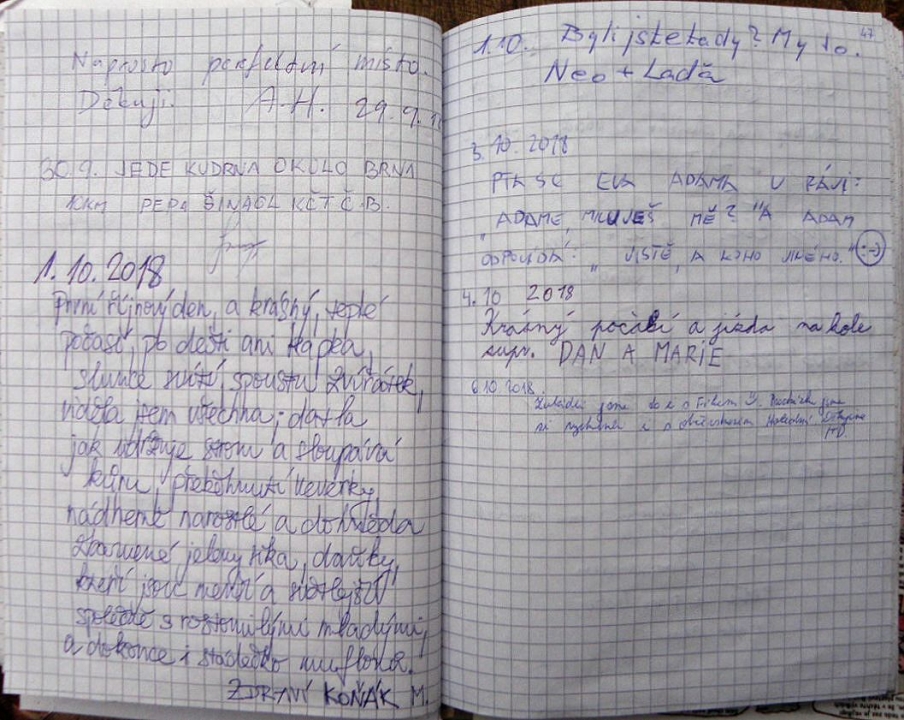 Naprosto perfektní místo.
Děkuji. A.H. 29.9.18
30.9. JEDE KUDRNA OKOLO BRNA
KKM PEPA ŠINÁGL KČT Č.B.
1.10.2018
První říjnový den, a krásný, teplé
počasí, po dešti ani kapka,
slunce svítí, spoustu zvířátek,
viděla jsem všechna; datla
jak udržuje strom a sloupává
kůru, přeběhnutí veverky,
nádherně narostlé a dohněda
zbarvené jeleny sika, daňky,
kteří jsou menší a světlejší
společně s roztomilými mladými,
a dokonce i stádečko muflonů.
ZDRAVÍ KOŇÁK M.
47
1.10. Byli jste tady? My jo.
Neo + Laďa
3.10.2018
PTÁ SE EVA ADAMA V RÁJI:
"ADAME, MILUJEŠ MĚ?" A ADAM
ODPOVÍDÁ: "JISTĚ, A KOHO JINÉHO." :-)
4.10 2018
Krásný počasí a jízda na kole
supr. DAN A MARIE
6.10.2018.
jsme se s
se i s